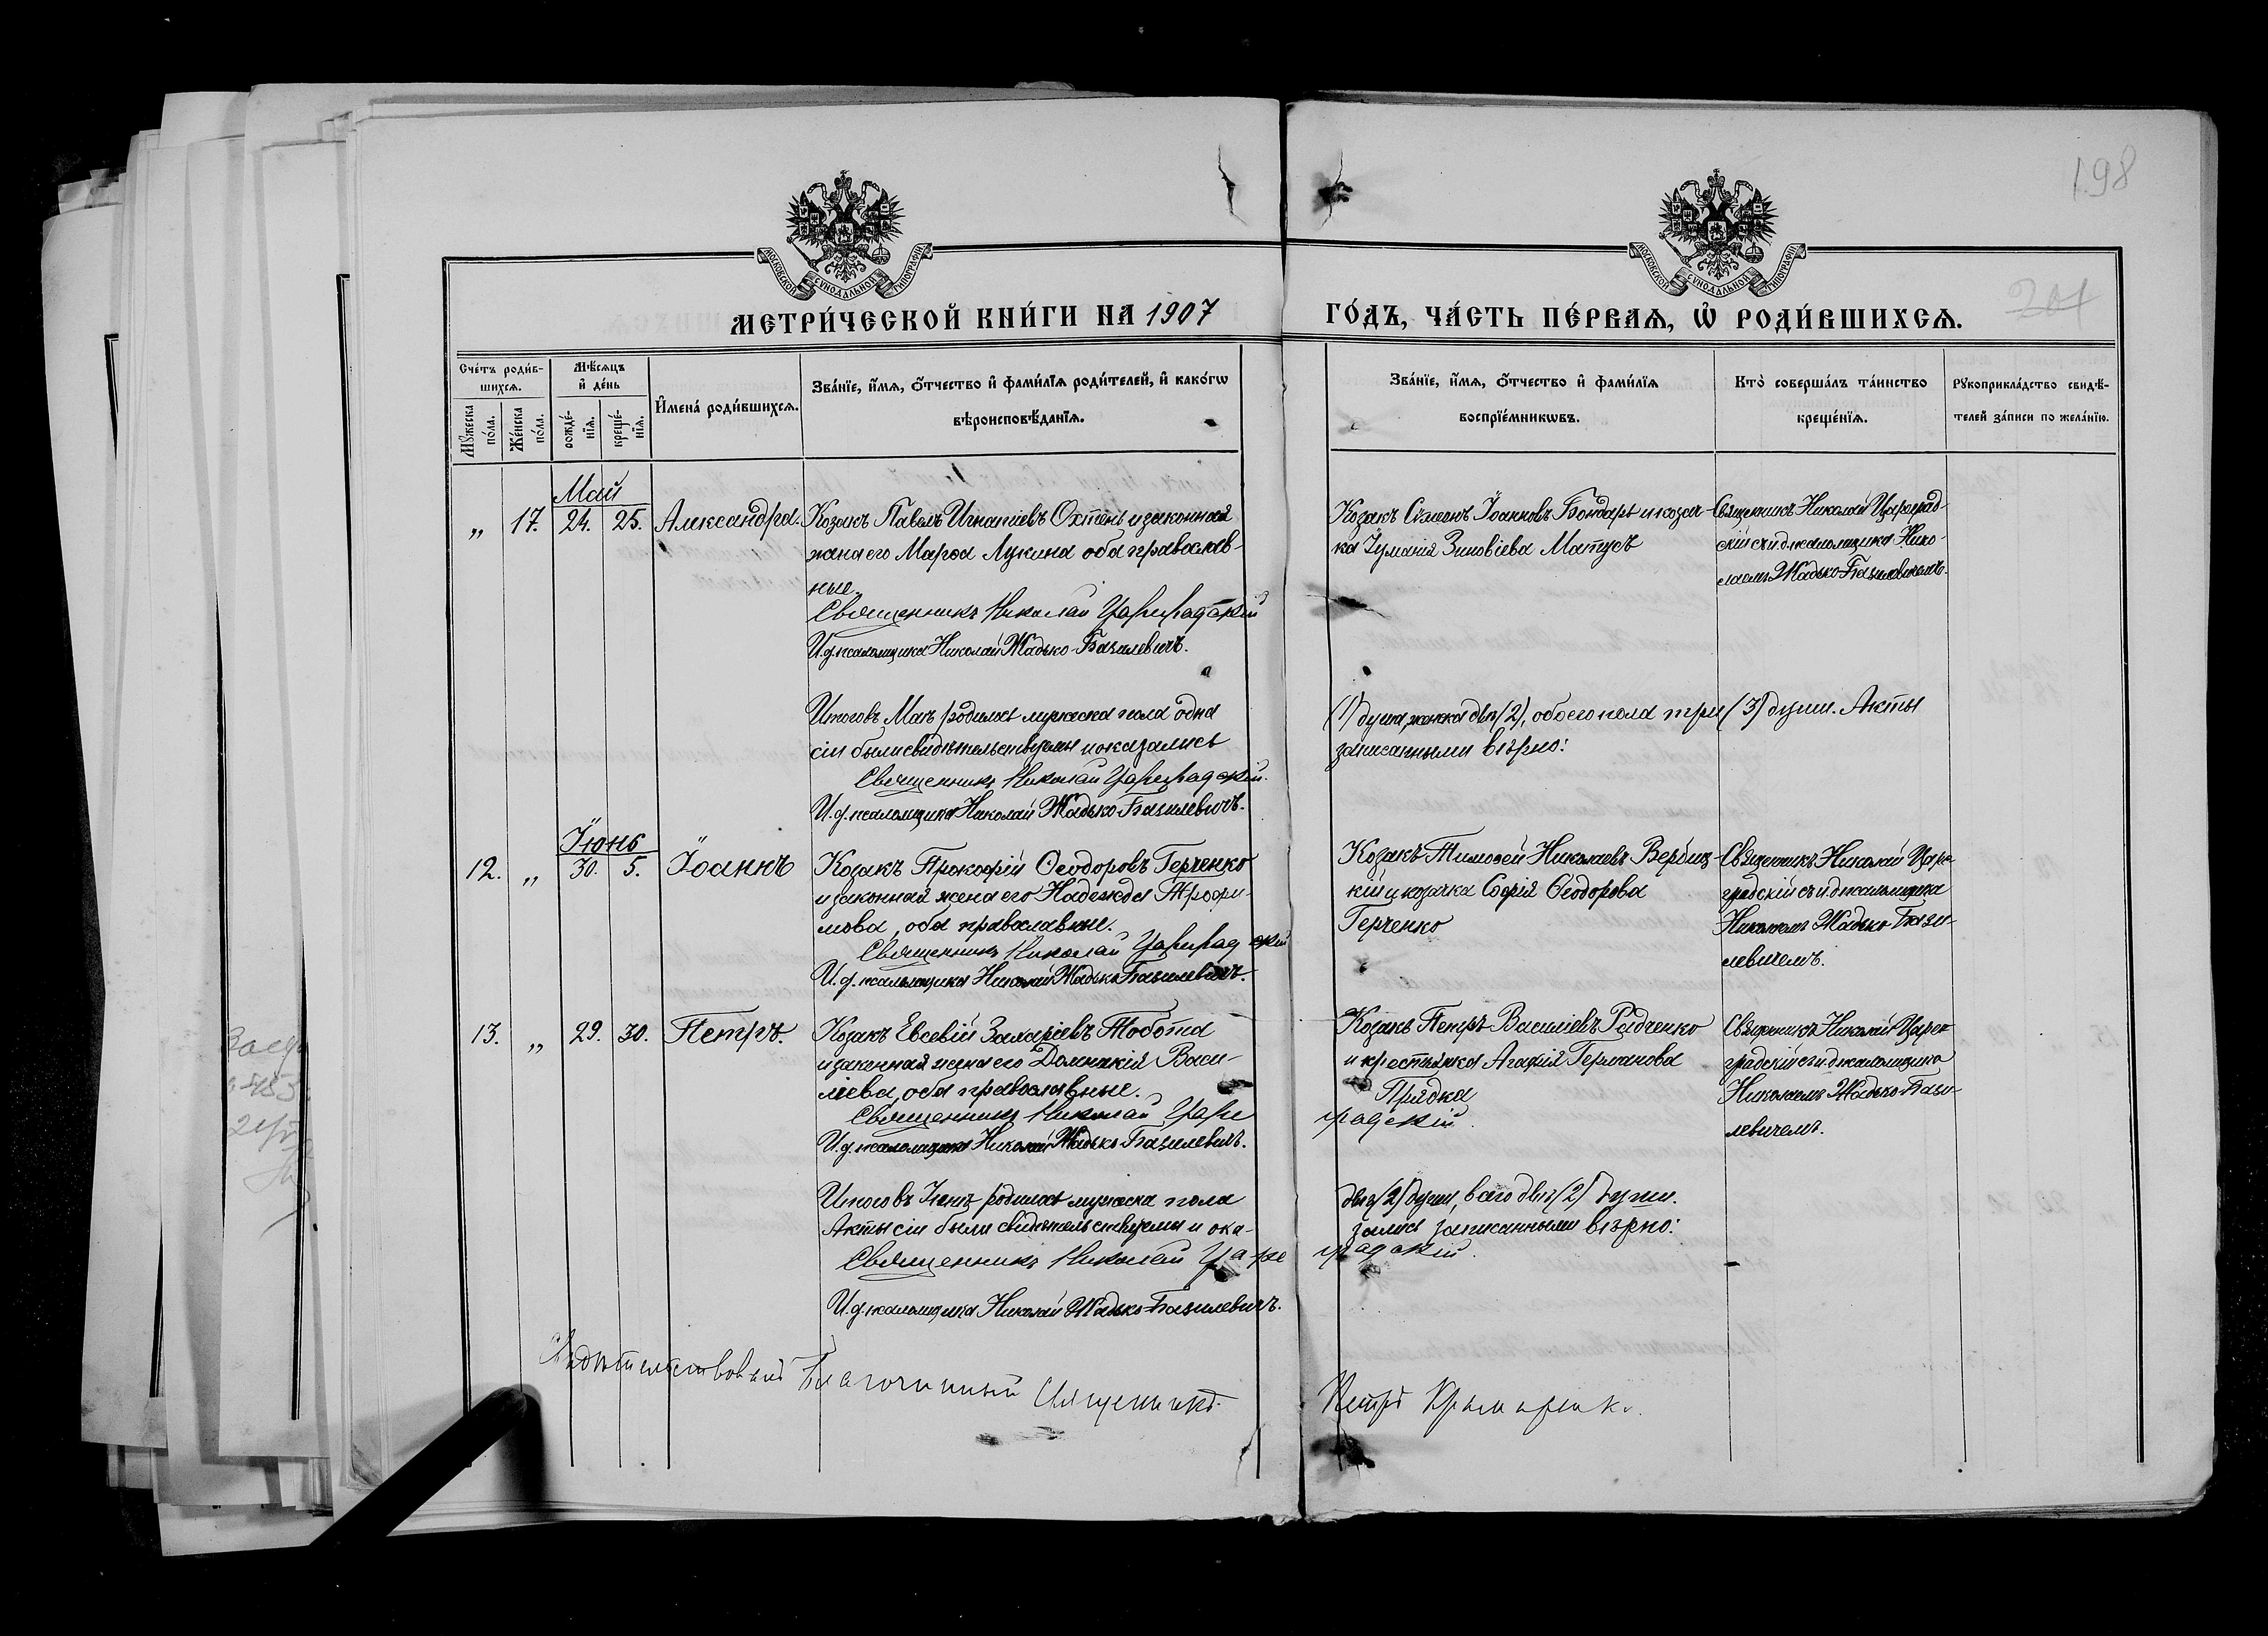 198
МОСКОВСКОЙ СѴНОДАЛЬНОЙ ТИПОГРАФІИ
МОСКОВСКОЙ СѴНОДАЛЬНОЙ ТИПОГРАФІИ
201
МЕТРИ́ЧЕСКОЙ КНИ́ГИ НА 1907 ГО́ДЪ, ЧА́СТЬ ПЕ́РВАѦ, Ѡ РОДИ́ВШИХСѦ.
Сче́тъ роди́в-
шихсѧ.
Мѹ́жеска по́ла.
Же́нска по́ла.
Мѣ́сѧцъ
и де́нь
рожде́-
нїѧ.
креще́-
нїѧ.
Имена́ роди́вшихсѧ.
Зва́нїе, и́мѧ, ѻ́тчество и фами́лїѧ роди́телей, и како́гѡ
вѣроисповѣ́данїѧ.
Зва́нїе, и́мѧ, ѻ́тчество и фами́лїѧ
воспрїе́мникѡвъ.
Кто̀ соверша́лъ та́инство
креще́нїѧ.
Рѹкоприкла́дство свидѣ́-
телей за́писи по жела́нїю.
Май
„ 17. 24. 25. Александра.
Козакъ Павелъ Игнатіевъ Охтень и законная
жена его Марѳа Лукина оба православ-
ные.
Священникъ Николай Цареградскій
И. д. псаломщика Николай Жадько-Базилевичъ.
Козакъ Сѵмеонъ Іоанновъ Бондарь и козач-
ка Іуліанія Зиновіева Матусъ
Священникъ Николай Цареград-
скій съ и д псаломщика Нико-
лаемъ Жадько-Базилевичемъ.
Итого въ Маѣ родилось мужеска пола одна (1) душа, женска двѣ (2), обоего пола три (3) души. Акты
сіи были свидѣтельствуемы и оказались записанными вѣрно:
Священникъ Николай Цареградскій.
И. д. псаломщика Николай Жадько-Базилевичъ.
Іюнь
12. „ 30. 5. Іоаннъ
Козакъ Прокофій Ѳеодоровъ Герченко
и законная жена его Надежда Трофи-
мова, оба православные.
Священникъ Николай Цареградскій
И. д. псаломщика Николай Жадько-Базилевичъ.
Козакъ Тимоѳей Николаевъ Вербиц-
кій и козачка Софія Ѳеодорова
Герченко
Священникъ Николай Царе-
градскій съ и д псаломщика
Николаемъ Жадько-Бази-
левичемъ.
13. „ 29. 30. Петръ.
Козакъ Евсевій Захаріевъ Тобота
и законная жена его Домникія Васи-
ліева, оба православные.
Священникъ Николай Цареградскій.
И. д. псаломщика Николай Жадько-Базилевичъ.
Козакъ Петръ Василіевъ Радченко
и крестьянка Агафія Германова
Прядка
Священникъ Николай Царе-
градскій съ и. д псаломщика
Николаемъ Жадько-Бази-
левичемъ.
Итого въ Іюнѣ родилось мужеска пола двѣ (2) души, всего двѣ (2) души.
Акты сіи были свидѣтельствуемы и оказались записанными вѣрно:
Священникъ Николай Цареградскій.
И. д. псаломщика Николай Жадько-Базилевичъ.
Свидѣтельствовалъ Благочинный Священникъ Петръ